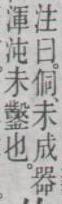 注曰。侗、未成器
渾沌未鑿也。